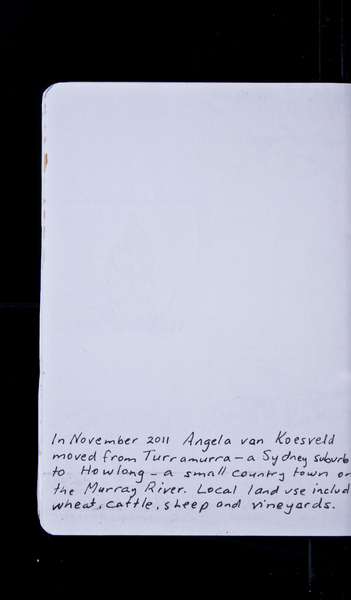 In November 2011 Angela van Koesveld
moved from Turramurra - a Sydney suburb
to Howlong - a small country town on
the Murray River. Local land use includ
wheat, cattle, sheep and vineyards.